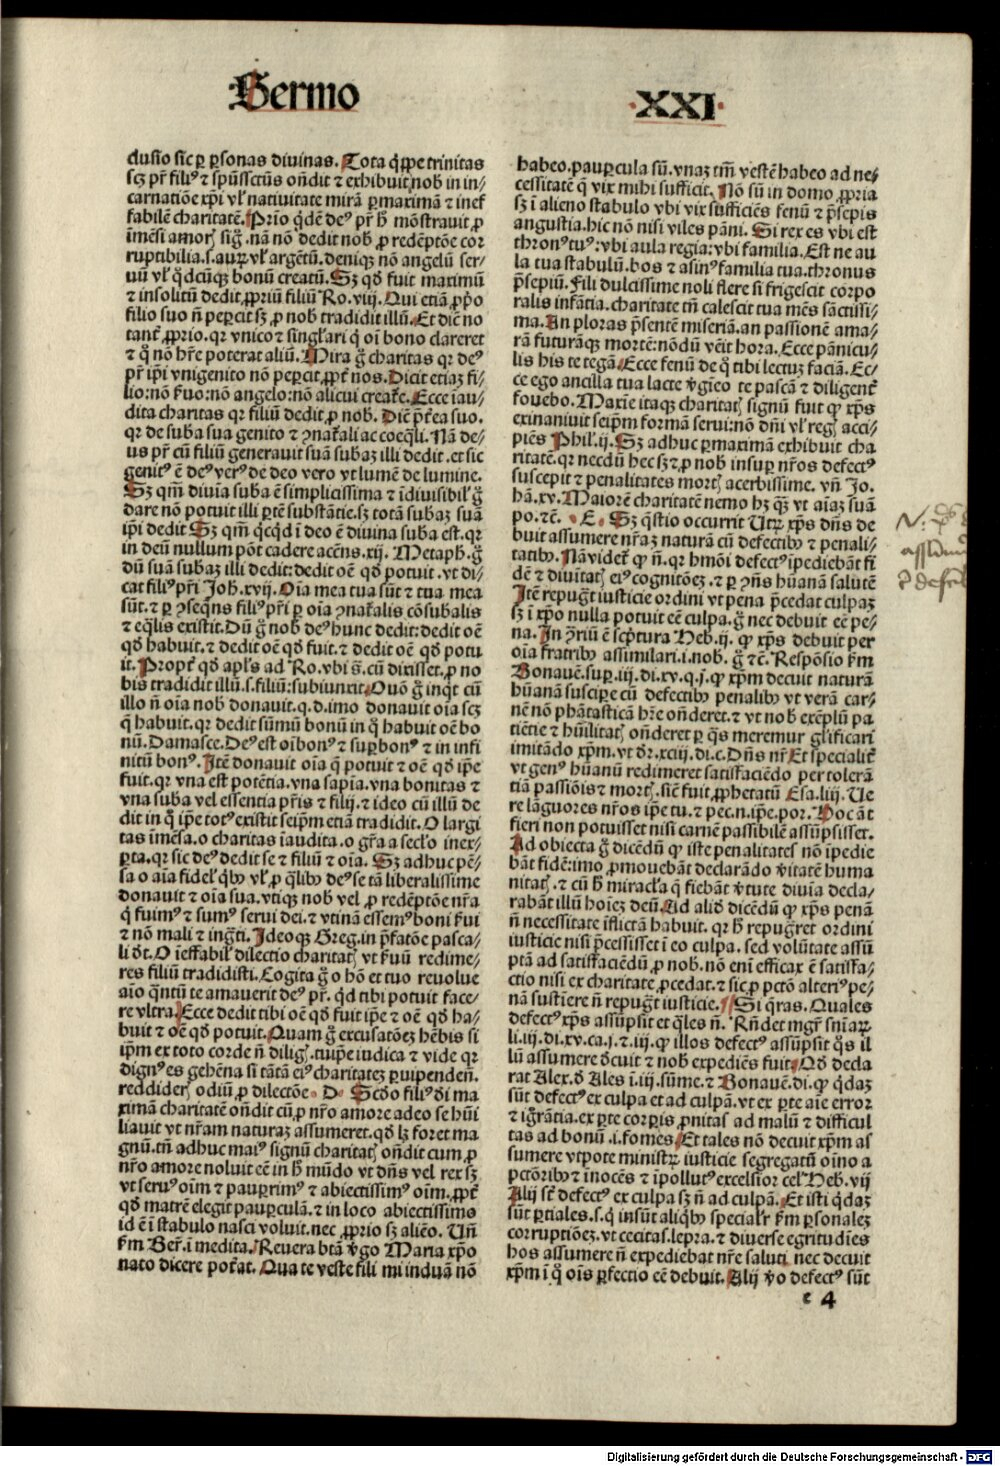 Sermo
·XXI·
clusio sic ꝑ ꝑsonas diuinas. Tota q̄ppe trinitas
scꝫ pr̄ filiꝰ ⁊ spūssctūs oñdit ⁊ exhibuit nob̄ in in/
carnatiōe xp̄i vl̓ natiuitate mirā ꝑmaximā ⁊ inef
fabilē charitatē. Prīo q̇dē deꝰ pr̄ h̄ mōstrauit ꝓ
īmēsi amorꝭ sig̊. nā nō dedit nob̄ ꝓ redēptōe cor
ruptibilia.s.auꝝ vl̓ argētū.deniqꝫ nō angelū ser/
uū vl̓ qd̄cūqꝫ bonū creatū. Sꝫ qd̄ fuit maximū
⁊ insolitū dedit ꝓpriū filiū Ro.viij. Qui etiā ꝓp̓o
filio suo ñ peꝑcit sꝫ ꝓ nob̄ tradidit illū. Et diē no
tant̓ ꝓprio.qꝛ vnico ⁊ singl̓ari q̄ oī bono clareret
⁊ q̄ nō hr̄e poterat aliū. Mira g̊ charitas qꝛ deꝰ
pr̄ ip̄i vnigenito nō peꝑcit ꝓpt̓ nos. Dicit etiaꝫ fi/
lio:nō ẜuo:nō angelo:nō alicui creatꝛe. Ecce iau/
dita charitas qꝛ filiū dedit ꝓ nob̄. Diē p̄tꝛea suo.
qꝛ de suba sua genito ⁊ ꝯnat̓ali ac coeq̄li. Nā de/
us pr̄ cū filiū generauit suā subaꝫ illi dedit.et sic
genitꝰ ē deꝰ verꝰ de deo vero vt lumē de lumine.
Sꝫ qm̄ diuīa suba ē simplicissima ⁊ īdiuisibil̓ g̊
dare nō potuit illi ꝑtē substātie.sꝫ totā subaꝫ suā
ip̄i dedit Sꝫ qm̄ q̇cqd̄ ī deo ē diuina suba est.qꝛ
in deū nullum pōt cadere accn̄s.xij. Metaph. g̊
dū suā subaꝫ illi dedit:dedit oē qd̄ potuit.vt di/
cat filiꝰ pr̄i Joh.xvij. Oīa mea tua sūt ⁊ tua mea
sūt.⁊ ꝑ ꝯseqn̄s filiꝰ pr̄i ꝑ oīa ꝯnat̓alis cōsubalis
⁊ eq̄lis existit. Dū g̊ nob̄ deꝰ hunc dedit:dedit oē
qd̄ habuit.⁊ dedit oē qd̄ fuit.⁊ dedit oē qd̄ potu
it. Propt̓ qd̄ apl̓s ad Ro.vbi s̄.cū dixisset.ꝓ no
bis tradidit illū.s.filiū:subiunxit. Quō g̊ inq̇t cū
illo ñ oīa nob̄ donauit.q.d.imo donauit oīa scꝫ
q̄ habuit.qꝛ dedit sūmū bonū in q̊ habuit oē bo
nū. Damasce. Deꝰ est oībonꝰ ⁊ suꝑbonꝰ ⁊ in infi
nitū bonꝰ. Itē donauit oīa q̄ potuit ⁊ oē qd̄ ip̄e
fuit.qꝛ vna est potētia.vna sapīa.vna bonitas ⁊
vna suba vel essentia pr̄is ⁊ filij.⁊ ideo cū illū de
dit in q̊ ip̄e totꝰ existit seip̄m etiā tradidit. O largi
tas īmēsa.o charitas īaudita.o gr̄a a secl̓o inex/
ꝑta.qꝛ sic deꝰ dedit se ⁊ filiū ⁊ oīa. Sꝫ adhuc pē/
sa o aīa fidel̓ q̇bꝰ vl̓ ꝓ q̇libꝰ deꝰ se tā liberalissime
donauit ⁊ oīa sua.vtiqꝫ nob̄ vel ꝓ redēptōe nr̄a
q̄ fuimꝰ ⁊ sumꝰ serui dei.⁊ vtinā essemꝰ boni ẜui
⁊ nō mali ⁊ ingr̄ti. Ideoqꝫ Greg.in p̄fatōe pasca/
li dt̄. O ineffabil̓ dilectio charitatꝭ vt ẜuū redime/
res filiū tradidisti. Cogita g̊ o hō et tuo reuolue
aīo q̄ntū te amauerit deꝰ pr̄. qd̄ tibi potuit face/
re vltra. Ecce dedit tibi oē qd̄ fuit ip̄e ⁊ oē qd̄ ha/
buit ⁊ oē qd̄ potuit. Quam g̊ excusatōeꝫ hēbis si
ip̄m ex toto corde ñ diligꝭ.tuip̄e iudica ⁊ vide qꝛ
dignꝰ es gehēna si tātā eiꝰ charitateꝫ ꝑuipenden̄.
reddiderꝭ odiū ꝓ dilectōe. D Scdo filiꝰ dī ma
ximā charitatē oñdit cū ꝓ nr̄o amore adeo se hūi
liauit vt nr̄am naturaꝫ assumeret.qd̄ lꝫ foret ma
gnū.tñ adhuc maiꝰ signū charitatꝭ oñdit cum ꝓ
nr̄o amore noluit eē in h̄ mūdo vt dn̄s vel rex sꝫ
vt seruꝰ oīm ⁊ pauꝑrimꝰ ⁊ abiectissimꝰ oīm. ꝓpt̓
qd̄ matrē elegit pauꝑculā.⁊ in loco abiectissimo
id ē ī stabulo nasci voluit.nec ꝓprio sꝫ aliēo. Un̄
ẜm Ber.ī medita. Reuera btā v̓go Maria xp̄o
nato dicere pot̓at. Qua te veste fili mi induā nō
habeo.pauꝑcula sū.vnaꝫ tm̄ vestē habeo ad ne/
cessitatē q̄ vix mihi sufficit. Nō sū in domo ꝓpria
sꝫ ī alieno stabulo vbi vix sufficiēs fenū ⁊ p̄sepis
angustia.hic nō nisi viles pāni. Si rex es vbi est
thronꝰ tuꝰ:vbi aula regia:vbi familia. Est ne au
la tua stabulū.bos ⁊ asinꝰ familia tua.thronus
p̄sepiū. Fili dulcissime noli flere si frigescit corpo
ralis infātia.charitate tñ calescit tua mēs sāctissi/
ma. An ploras p̄sentē miseriā.an passionē ama/
rā futurāqꝫ mortē:nōdū vēit hora. Ecce pānicu/
lis his te tegā. Ecce fenū de q̊ tibi lectuꝫ faciā. Ec/
ce ego ancilla tua lacte v̓gieo te pascā ⁊ diligent̓
fouebo. Maxīe itaqꝫ charitatꝭ signū fuit qꝙ xp̄s
exinaniuit seip̄m formā serui:nō dn̄i vl̓ regꝭ acci/
piēs Phil̓.ij. Sꝫ adhuc ꝑmaximā exhibuit cha
ritatē.qꝛ necdū hec sꝫ ⁊ ꝓ nob̄ insuꝑ nr̄os defectꝰ
suscepit ⁊ penalitates mortꝭ acerbissime. vñ Jo.
hā.xv. Maiorē charitatē nemo hꝫ qꝫ vt aīaꝫ suā
po.⁊c̄. E. Sꝫ q̄stio occurrit Utꝝ xp̄s dn̄s de
buit assumere nr̄aꝫ naturā cū defectibꝰ ⁊ penali/
tatibꝰ. Na videt̓ ꝙ ñ.qꝛ hmōi defectꝰ īpediebāt fi
dē ⁊ diuītatꝭ eiꝰ cognitōeꝫ.⁊ ꝑ ꝯn̄s hūanā salutē
Itē repugt̄ iusticie ordini vt pena p̄cedat culpaꝫ
sꝫ ī xp̄o nulla potuit eē culpa.g̊ nec debuit eē pe/
na. In ꝯriū ē scp̄tura Heb.ij. ꝙ xp̄s debuit per
oīa fratribꝰ assimilari.i.nob̄. g̊ ⁊c̄. Respōsio ẜm
Bonauē.suꝑ.iij.di.xv.q.j.ꝙ xp̄m decuit naturā
hūanā suscipe cū defectibꝰ penalibꝰ vt verā car/
nē nō phātasticā hr̄e oñderet.⁊ vt nob̄ exēplū pa
tiētie ⁊ hūilitatꝭ oñderet ꝑ q̄s meremur gl̓ificari
imitādo xp̄m.vt dꝛ.xciij.di.c. Dn̄s nr̄ Et specialit̓
vt genꝰ hūanū redimeret satisfaciēdo per tolerā
tiā passiōis ⁊ mortꝭ.sic̄ fuit ꝓphetatū Esa.liij. Ue
re lāguores nr̄os ip̄e tu.⁊ pec.n.ip̄e.por. Hoc āt
fieri non potuisset nisi carnē passibilē assūpsisset.
Ad obiecta g̊ dicēdū ꝙ iste penalitates nō īpedie
bāt fidē:imo ꝓmouebāt declarādo v̓itatē huma
nitatꝭ.⁊ cū h̄ miracl̓a q̄ fiebāt v̓tute diuīa decla/
rabāt illū hoīeꝫ deū. Ad aliō dicēdū ꝙ xp̄s penā
ñ necessitate īflictā habuit.qꝛ h̄ repugr̄et ordini
iusticie nisi p̄cessisset ī eo culpa.sed volūtate assū
ptā ad satisfaciēdū ꝓ nob̄.nō enī efficax ē satisfa/
ctio nisi ex charitate ꝓcedat.⁊ sic ꝓ pctō alteriꝰ pe/
nā sustīere ñ repugt̄ iusticie. Si q̄ras. Quales
defectꝰ xp̄s assūpsit et q̄les ñ. Rn̄det mgr̄ snīaꝝ
li.iij.di.xv.ca.j.⁊.iij.ꝙ illos defectꝰ assūpsit q̇s il
lū assumere decuit ⁊ nob̄ expediēs fuit. Qd̄ decla
rat Alex.d̄ Ales ī.iij.sūme.⁊ Bonauē.di.ꝙ q̇daꝫ
sūt defectꝰ ex culpa et ad culpā.vt ex ꝑte aīe error
⁊ igr̄ātia.ex ꝑte corꝑis ꝓnitas ad malū ⁊ difficul
tas ad bonū.i.fomes. Et tales nō decuit xp̄m as
sumere vtpote ministꝝ iusticie segregatū oīno a
pctōribꝰ ⁊ inocēs ⁊ ipollutꝰ excelsior cel̓ Heb.vij
Alij sꝫ defectꝰ ex culpa sꝫ ñ ad culpā. Et isti q̇daꝫ
sūt ꝑtiales.s.q̄ insūt aliq̇bꝰ special̓r ẜm ꝑsonaleꝫ
corruptiōeꝫ.vt cecitas.lepra.⁊ diuerse egritudīes
hos assumere ñ expediebat nr̄e saluti nec decuit
xp̄m ī q̊ oīs ꝑfectio eē debuit. Alij v̓o defectꝰ sūt
e 4
Digitalisierung gefördert durch die Deutsche Forschungsgemeinschaft - DFG